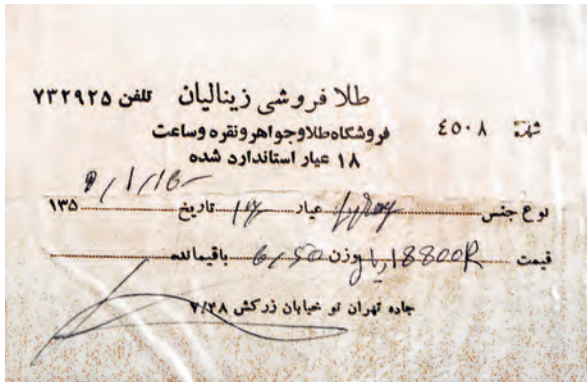 طلا فروشی زینالیان تلفن ۷۳۲۹۲۵
فروشگاه طلا و جواهر و نقره و ساعت
شماره ٤٥٠٨
۱۸ عیار استاندارد شده
نوع جنس عیار تاریخ ۱۳۵
قیمت 18800R ریال وزن 6/50 باقیمانده
جاده تهران نو خیابان زرکش ۷/۳۸